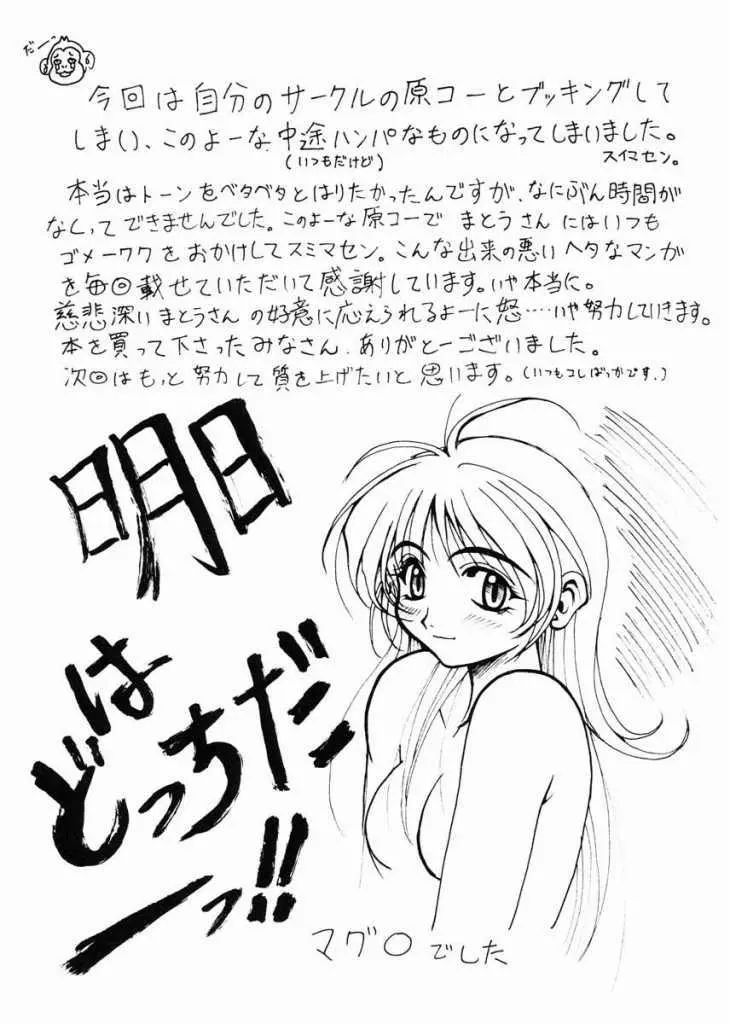 だー
今回は自分のサークルの原コーとブッキングして
しまい、このよーな中途ハンパなものになってしまいました。
(いつもだけど)
スイマセン。
本当はトーンをベタベタとはりたかったんですが、なにぶん時間が
なくってできませんでした。このよーな原コーで まとうさん にはいつも
ゴメーワクをおかけしてスミマセン。こんな出来の悪いヘタなマンガ
を毎回載せていただいて感謝しています。いや本当に。
慈悲深いまとうさんの好意に応えられるよーに怒……いや努力していきます。
本を買って下さったみなさん、ありがとーございました。
次回はもっと努力して質を上げたいと思います。(いつもコレばっかです。)
明日
はどっちだ
ーっ!!
マグ〇でした